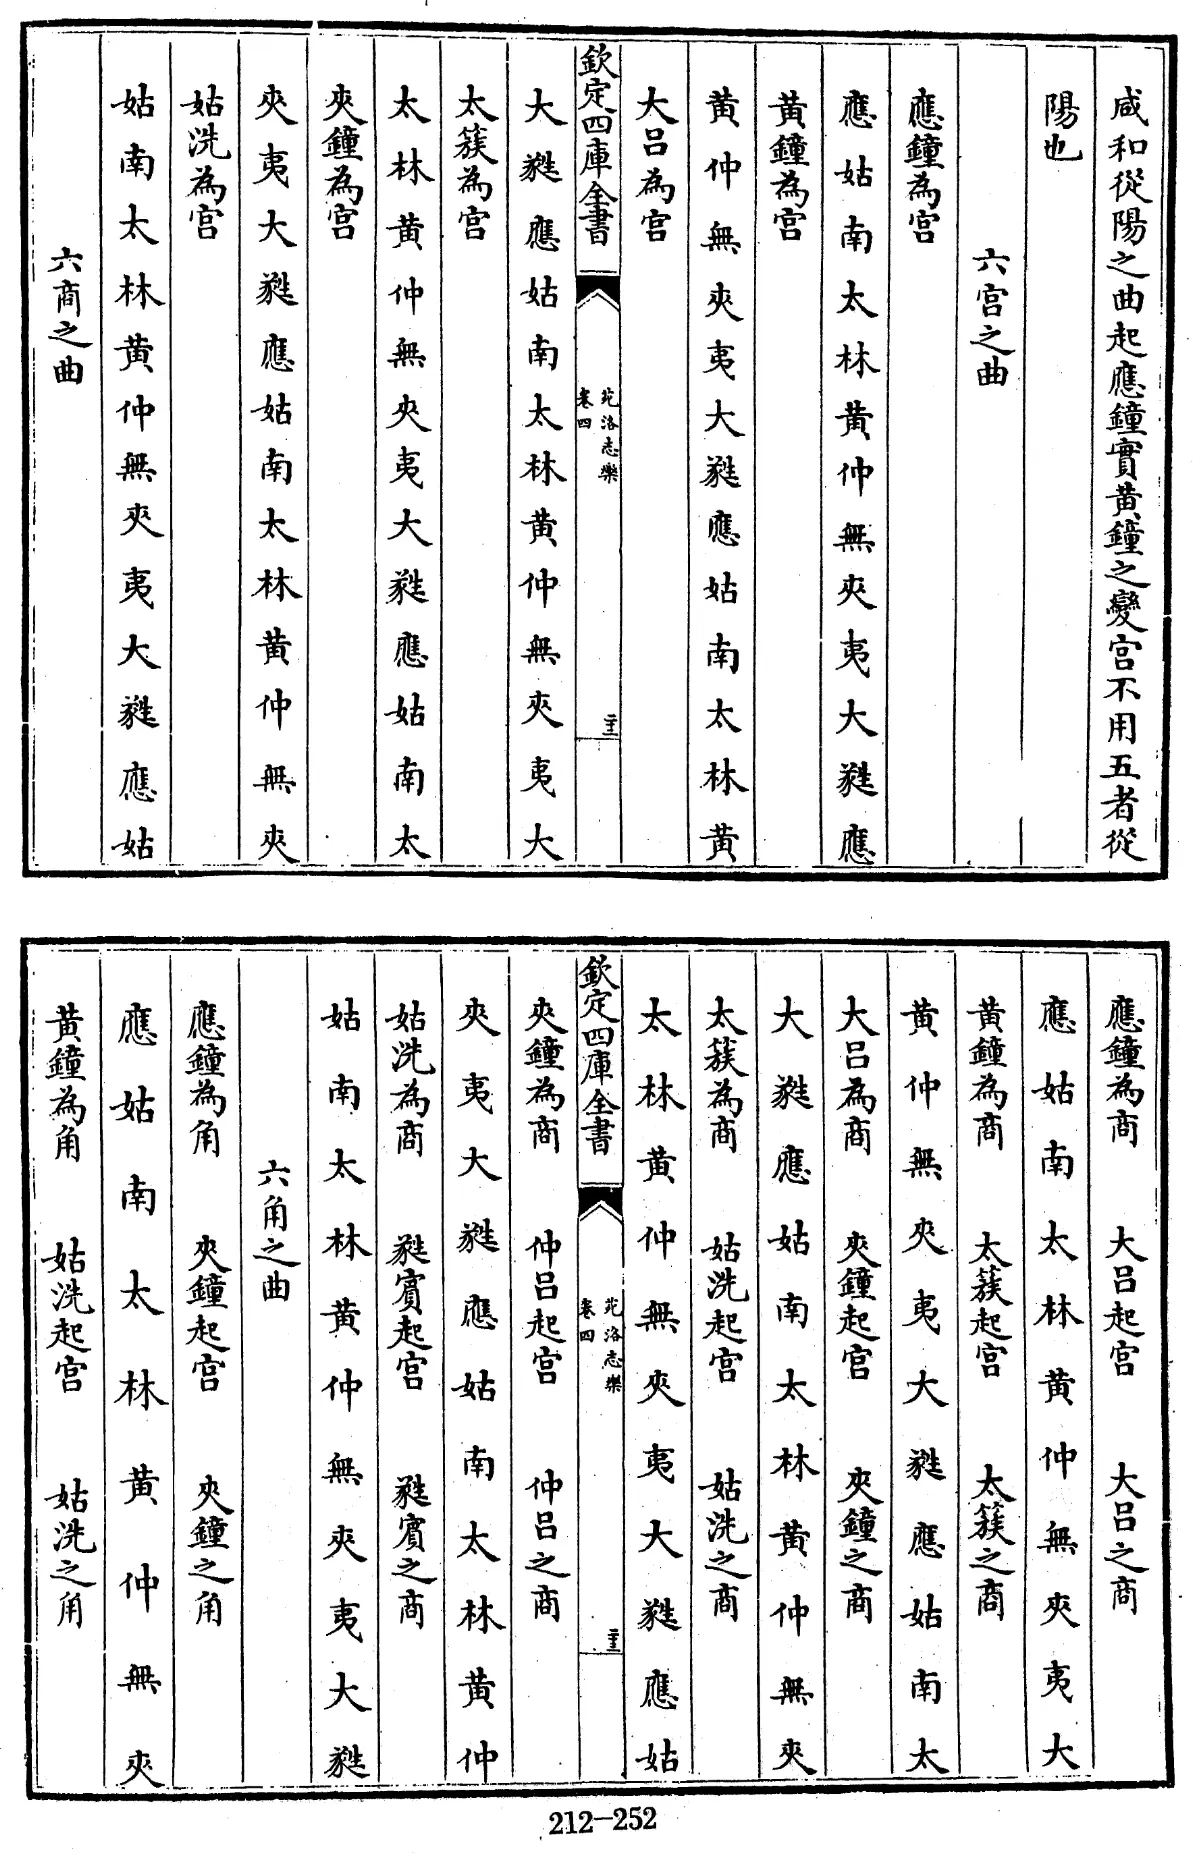 咸和從陽之曲起應鐘實黄鐘之變宫不用五者從
陽也
六宫之曲
應鐘為宫
應姑南太林黄仲無夾夷大蕤應
黄鐘為宫
黄仲無夾夷大蕤應姑南太林黄
大吕為宫
欽定四庫全書
苑洛志樂
卷四
大蕤應姑南太林黄仲無夾夷大
太簇為宫
太林黄仲無夾夷大蕤應姑南太
夾鐘為宫
夾夷大蕤應姑南太林黄仲無夾
姑洗為宫
姑南太林黄仲無夾夷大蕤應姑
六商之曲
應鐘為商 大吕起宫 大吕之商
應姑南太林黄仲無夾夷大
黄鐘為商 太簇起宫 太簇之商
黄仲無夾夷大蕤應姑南太
大吕為商 夾鐘起宫 夾鐘之商
大蕤應姑南太林黄仲無夾
太簇為商 姑洗起宫 姑洗之商
太林黄仲無夾夷大蕤應姑
欽定四庫全書
苑洛志樂
卷四
夾鐘為商 仲吕起宫 仲吕之商
夾夷大蕤應姑南太林黄仲
姑洗為商 蕤賓起宫 蕤賓之商
姑南太林黄仲無夾夷大蕤
六角之曲
應鐘為角 夾鐘起宫 夾鐘之角
應姑南太林黄仲無夾
黄鐘為角 姑洗起宫 姑洗之角
212-252